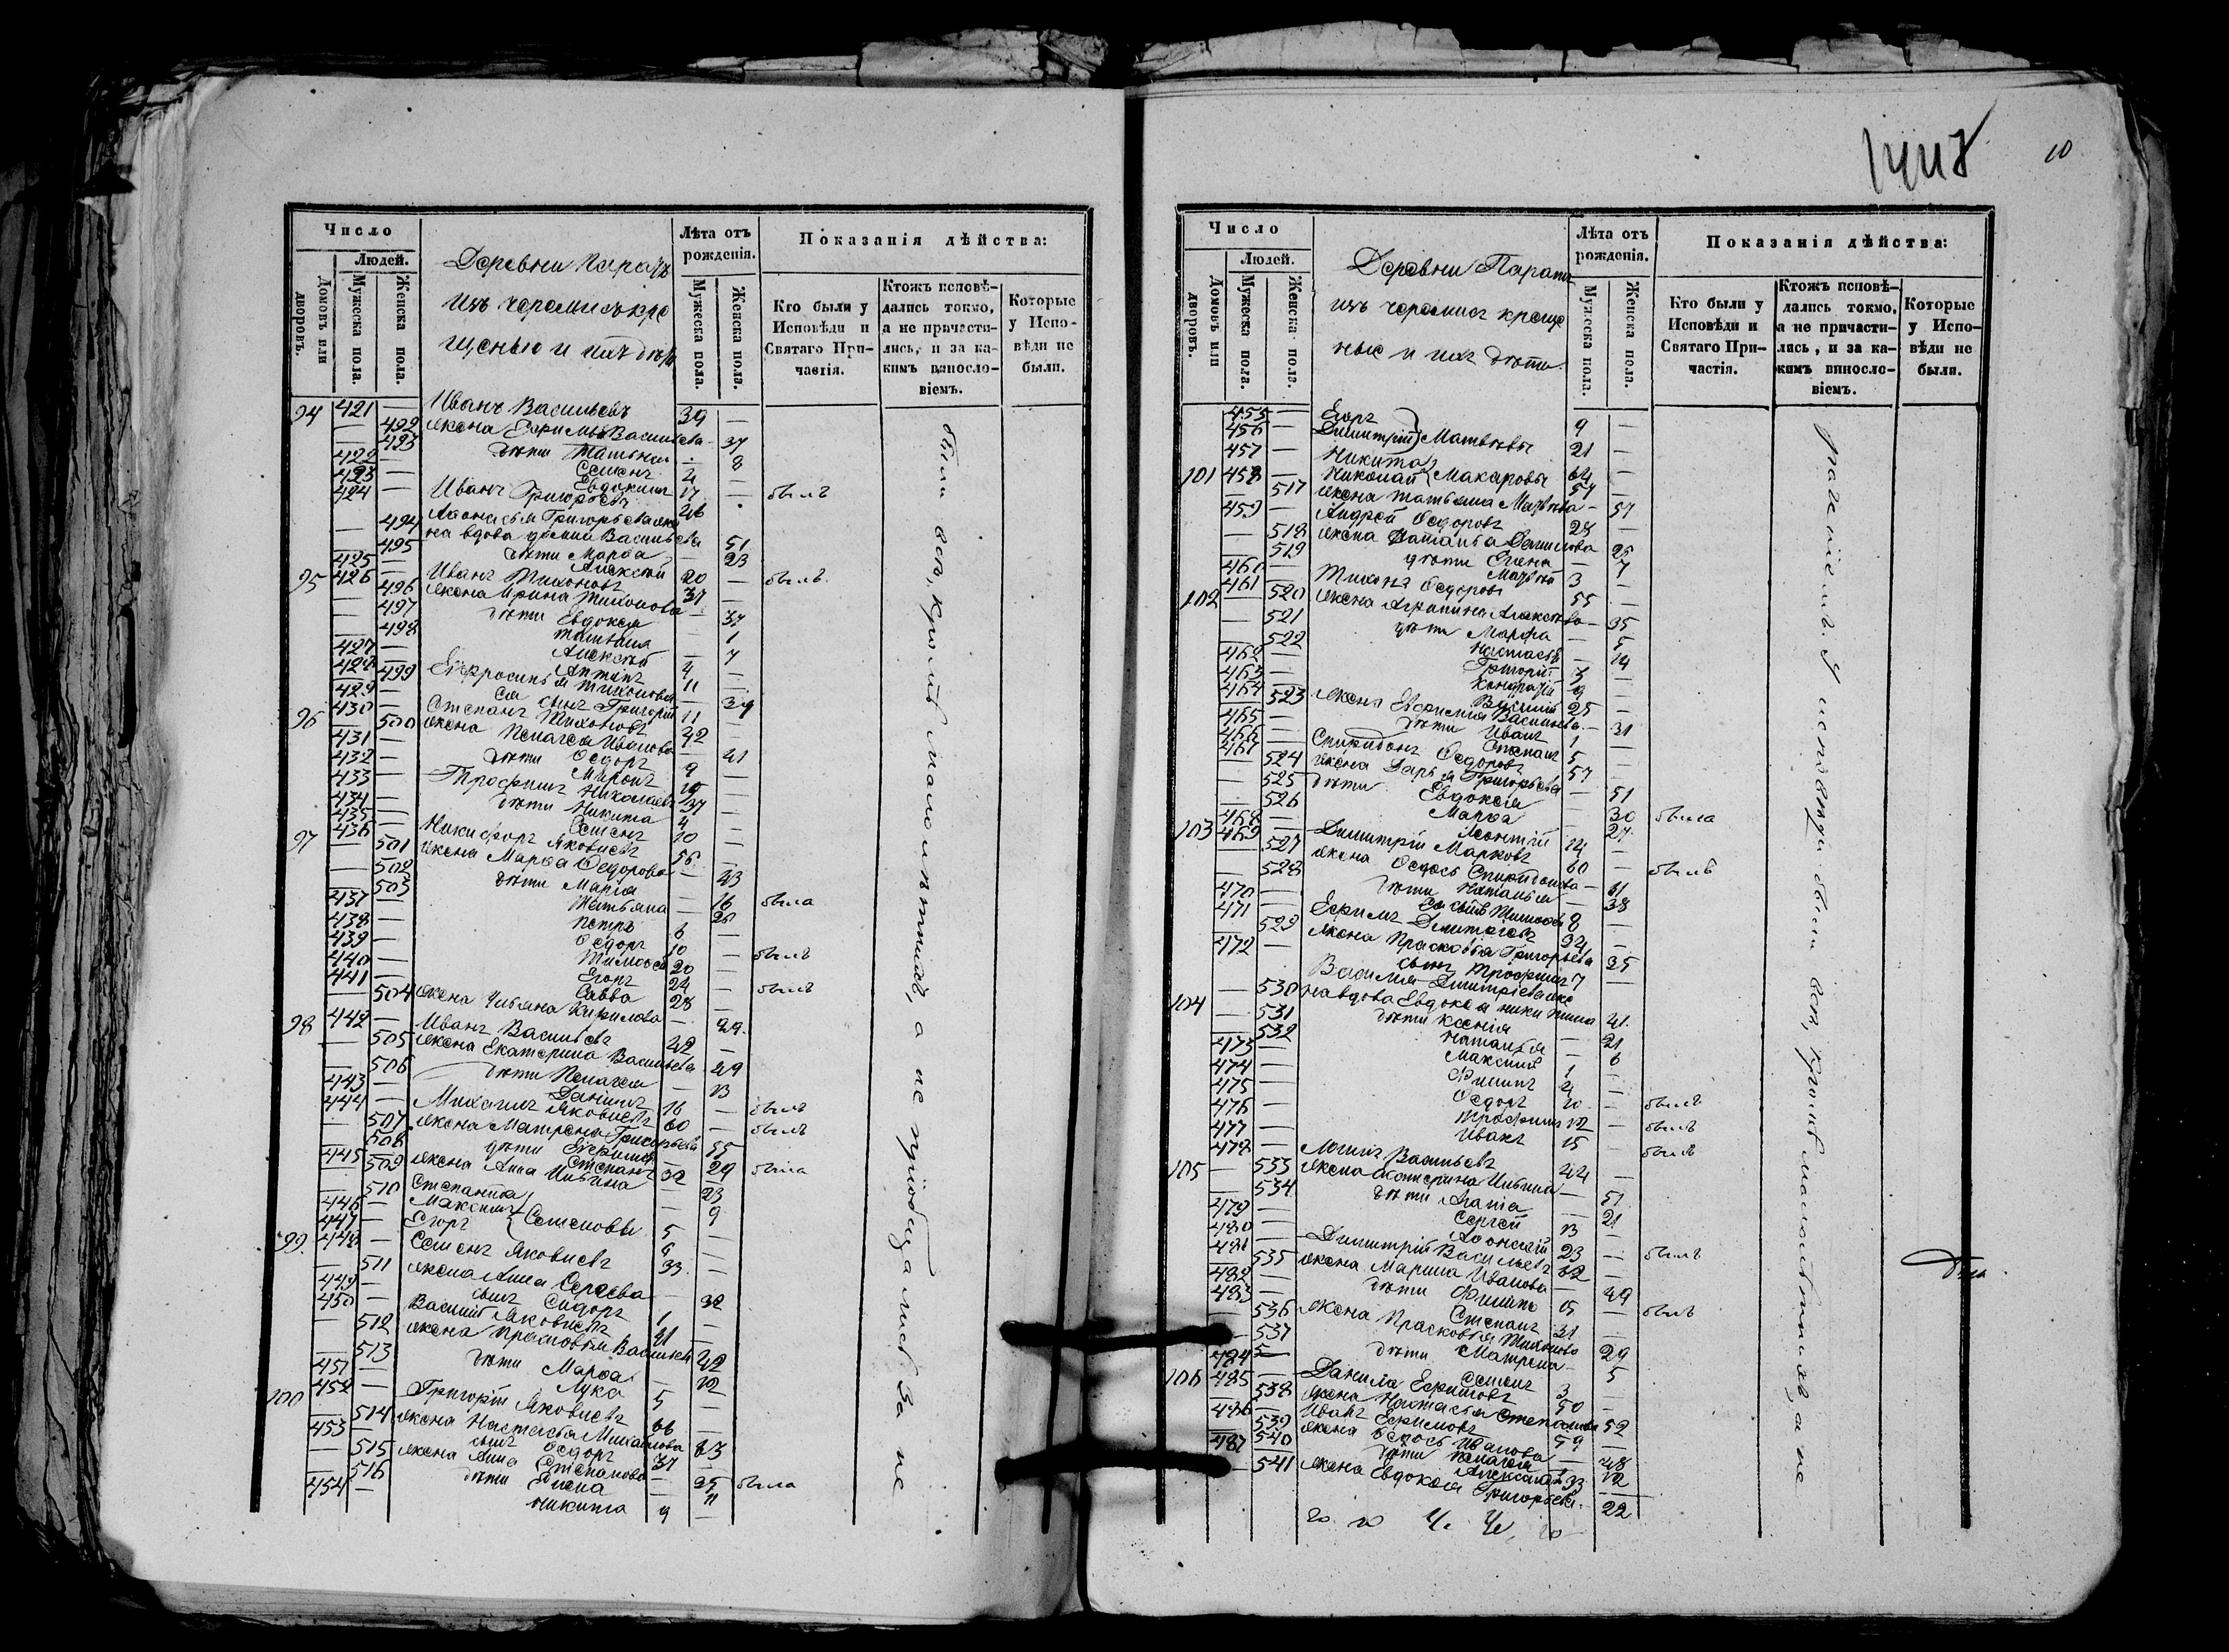 Число
Людей.
Домовъ или дворовъ.
Мужеска пола.
Женска пола.
Деревни Паратъ
изъ черемисъ кре
щеныю и ихъ дѣти
Лѣта отъ рожденія.
Мужеска пола.
Женска пола.
Показанія дѣйства:
Кто были у Исповѣди и Святаго Причастія.
Ктожъ исповѣдались токмо, а не причастились, и за какимъ винословіемъ.
Которые у Исповѣди не были.
94 421 — Иванъ Васильевъ 39 —
— 492 жена Васильева — 37
— 493 дѣти Татьяна — 8
422 — Семенъ
423 — Евдокимъ 17 — былъ
424 — Иванъ Григорьевъ
Аѳонасья Григорьева же
— 494 на вдова Васильева 51
— 495 дѣти Марѳа — 23
425 — Алексѣй 20 — былъ
95 426 — Иванъ Тихоновъ 37 —
— 496 жена Ирина Тихонова — 37
— 497 дѣти Евдокея — 1
— 498 Татьяна — 7
427 — Алексѣй 4 —
428 — Антипъ 11 —
— 499 Ефросинья Тихонова — 39
429 — ея сынъ Григорій 11
96 430 — Степанъ Тихоновъ 42 —
— 500 жена Пелагея Иванова — 41
431 — дѣти Ѳедоръ 9 —
432 — Миронъ
433 — Трофимъ Николаевъ 37 —
434 — дѣти Никита 4 —
435 — Семенъ 10 —
97 436 — Никифоръ Яковлевъ 56 —
— 501 жена Марѳа Ѳедорова — 43
— 502 дѣти Марія — 16 была
— 503 Татьяна — 20
437 — Петръ 6
438 — Ѳедоръ 10 — былъ
439 — Тимоѳей 20 —
440 — Егоръ 24 — былъ
441 — Савва 28 —
— 504 жена Ульяна Кирилова — 29
98 442 — Иванъ Васильевъ 42 —
— 505 жена Екатерина Васильева 49
— 506 дѣти Пелагея — 13
443 — Данилъ 16 — былъ
444 — Михаилъ Яковлевъ 60 — былъ
— 507 жена Матрена Григорьева 55
— 508 дѣти — 29 была
445 — Степанъ 32
— 509 жена Анна Ильина — 23
— 510 Степанида — 9
446 — Максимъ } Семеновы 5 —
447 — Егоръ 6 —
99 448 — Семенъ Яковлевъ 33 —
— 511 жена Анна — 32
449 — сынъ Сидоръ 1 —
450 — Василій Яковлевъ 41 —
— 512 жена Прасковья Васильева 42
— 513 дѣти Марѳа — 12
451 — Лука 5 —
100 452 — Григорій Яковлевъ 66 —
— 514 жена Настасья Михайлова 63
453 — сынъ Ѳедоръ 37 —
— 515 жена Анна Степанова — 35 была
— 516 дѣти Елена — 11
454 — Никита 9 —
были всѣ, кромѣ малолѣтнихъ, а не пріобщались за не
10
Число
Людей.
Домовъ или дворовъ.
Мужеска пола.
Женска пола.
Деревни Паратъ
изъ черемисъ креще
ные и ихъ дѣти
Лѣта отъ рожденія.
Мужеска пола.
Женска пола.
Показанія дѣйства:
Кто были у Исповѣди и Святаго Причастія.
Ктожъ исповѣдались токмо, а не причастились, и за какимъ винословіемъ.
Которые у Исповѣди не были.
455 — Егоръ } Матвѣевы 9 —
456 — Димитрій 21 —
457 — Никита } Макаровы 64 —
101 458 — Николай 57 —
— 517 жена Татьяна Матвѣева — 57
459 — Андрей Ѳедоровъ 28 —
— 518 жена Наталья Данилова 26
— 519 дѣти Елена — 7
460 — Матвѣй 3 —
102 461 — Тихонъ Ѳедоровъ 55 —
— 520 жена Агрипина Алексѣева — 35
— 521 дѣти Марфа — 5
— 522 Настасья — 14
462 — Григорій 3 —
463 — Кондратій 9 —
464 — Василій 25 —
— 523 жена Евфимія Васильева — 31
465 — дѣти Иванъ 1 —
466 — Степанъ 5 —
467 — Спиридонъ Ѳедоровъ 57 —
— 524 жена Дарья Григорьева — 51
— 525 дѣти Евдокея — 30 была
— 526 Марѳа — 27
468 — Леонтій 14 — былъ
103 469 — Димитрій Марковъ 60 —
— 527 жена Ѳедосья Спиридонова — 61
— 528 дѣти Наталья — 38
470 — ея сынъ Тимоѳей 8 —
471 — Ефимъ Дмитріевъ 34 —
— 529 жена Прасковья Григорьева 35
472 — сынъ Трофимъ 7 —
Василья Димитріева же
104 — 530 на вдова Евдокея Никитина 41
— 531 дѣти Ксенія — 21
— 532 Наталья — 6
473 — Максимъ 1 —
474 — Филипъ 4 —
475 — Ѳедоръ 10 — былъ
476 — Трофимъ 12 — былъ
477 — Иванъ 15 — былъ
105 478 — Логинъ Васильевъ 44 —
— 533 жена Екатерина Ильина — 51
— 534 дѣти Агапія — 21
479 — Сергей 13 —
480 — Аѳонасій 23 — былъ
481 — Димитрій Васильевъ 62 —
— 535 жена Марина Иванова — 49
482 — дѣти Филипъ 15 — былъ
483 — Степанъ 31 —
— 536 жена Прасковья Тихонова 29
— 537 дѣти Матрена — 5
484 — Семенъ 3 —
106 485 — Данила Ефимовъ 50 —
— 538 жена Настасья Степанова 52
486 — Иванъ Ефимовъ 59 —
— 539 жена Ѳедосья Иванова — 48
— 540 дѣти Пелагея — 12
487 — Александръ 33 —
— 541 жена Евдокея Григорьева 22
были всѣ, кромѣ малолѣтнихъ, а не